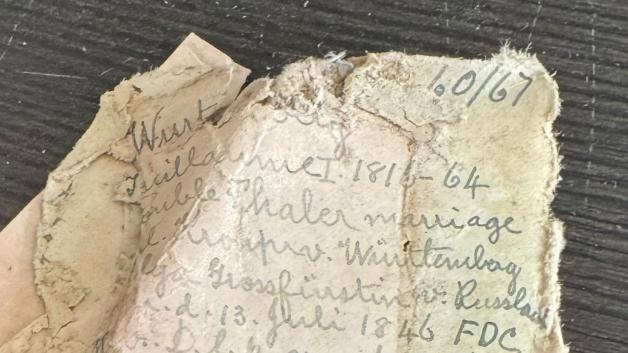 60/67
Wurt g
Guillaume I. 1816-64
ouble Thaler marriage
Kronprv. Würtembog
lga Grossfürstin v. Russland
d. 13. Juli 1846 FDC